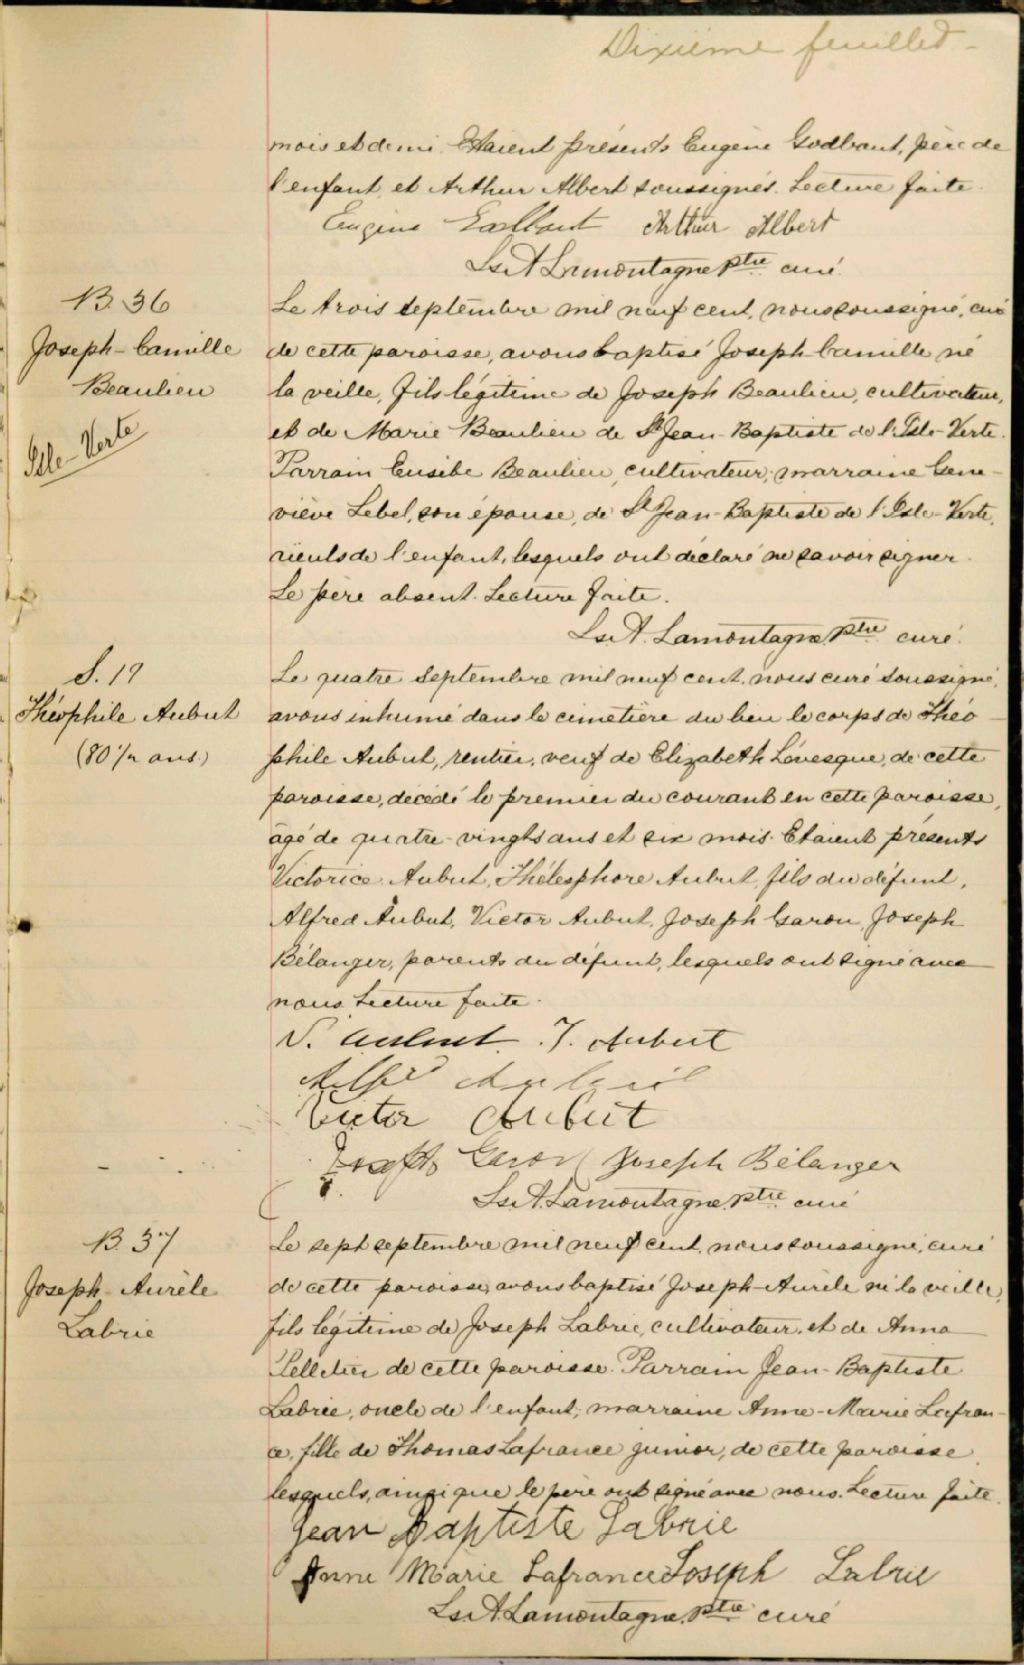 Dixième feuillet.-
mois et demi. Etaient présents Eugène Godbout, père de
l'enfant et Arthur Albert soussignés. Lecture faite.
Eugène Godbout Arthur Albert
Ls. A. Lamontagne ptre curé.
B. 36
Joseph-Camille
Beaulieu
Isle-Verte
Le trois septembre mil neuf cent, nous soussigné, curé
de cette paroisse, avons baptisé Joseph-Camille né
la veille, fils légitime de Joseph Beaulieu, cultivateur,
et de Marie Beaulieu de St Jean-Baptiste de l'Isle-Verte.
Parrain Eusèbe Beaulieu, cultivateur; marraine Gene-
viève Lebel, son épouse, de St Jean-Baptiste de l'Isle-Verte,
aïeuls de l'enfant, lesquels ont déclaré ne savoir signer.
Le père absent. Lecture faite.
Ls. A. Lamontagne ptre curé.
S. 19
Théophile Aubut
(80 1/2 ans.)
Le quatre Septembre mil neuf cent, nous curé soussigné,
avons inhumé dans le cimetière du lieu le corps de Théo-
phile Aubut, rentier, veuf de Elizabeth Lévesque, de cette
paroisse, décédé le premier du courant en cette paroisse,
âgé de quatre-vingts ans et six mois. Etaient présents
Victorice Aubut, Thélesphore Aubut, fils du défunt,
Alfred Aubut, Victor Aubut, Joseph Garon, Joseph
Bélanger, parents du défunt, lesquels ont signé avec
nous. Lecture faite.
V. Aubut. T. Aubut
Alfred Aubut
Victor Aubut
Joseph Garon Joseph Bélanger
Ls. A. Lamontagne ptre curé
B. 37
Joseph-Aurèle
Labrie
Le sept septembre mil neuf cent, nous soussigné, curé
de cette paroisse, avons baptisé Joseph-Aurèle né la veille,
fils légitime de Joseph Labrie, cultivateur, et de Anna
Pelletier de cette paroisse. Parrain Jean-Baptiste
Labrie, oncle de l'enfant; marraine Anne-Marie Lafran-
ce, fille de Thomas Lafrance junior, de cette paroisse,
lesquels, ainsi que le père ont signé avec nous. Lecture faite.
Jean Baptiste Labrie
Anne Marie Lafrance Joseph Labrie
Ls. A. Lamontagne ptre curé